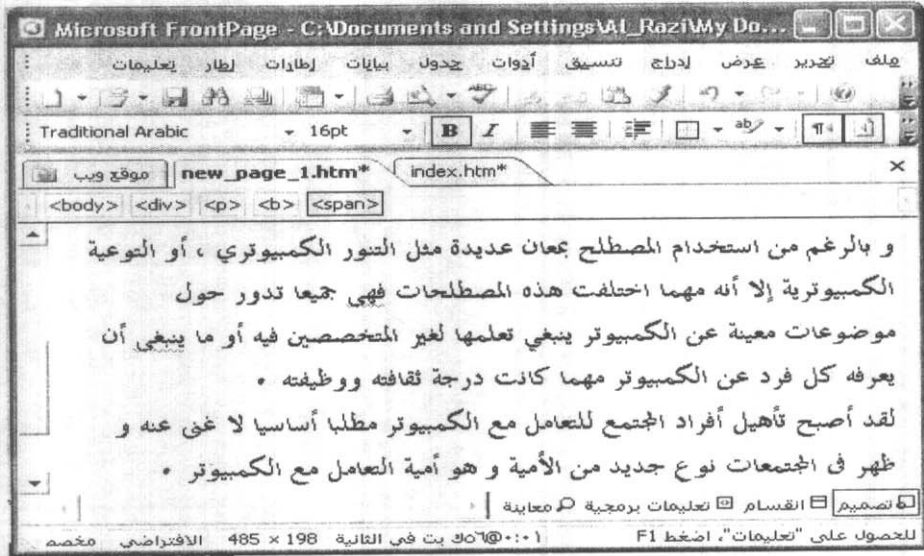 Microsoft FrontPage - C:\Documents and Settings\Al_Razi\My Do...
ملف تحرير عرض إدراج تنسيق أدوات جدول بيانات إطارات إطار تعليمات
Traditional Arabic 16pt B I
موقع ويب new_page_1.htm* index.htm*
<body> <div> <p> <b> <span>
و بالرغم من استخدام المصطلح بمعان عديدة مثل التنور الكمبيوتري ، أو التوعية
الكمبيوترية إلا أنه مهما اختلفت هذه المصطلحات فهي جميعا تدور حول
موضوعات معينة عن الكمبيوتر ينبغي تعلمها لغير المتخصصين فيه أو ما ينبغى أن
يعرفه كل فرد عن الكمبيوتر مهما كانت درجة ثقافته ووظيفته .
لقد أصبح تأهيل أفراد المجتمع للتعامل مع الكمبيوتر مطلبا أساسيا لا غنى عنه و
ظهر فى المجتمعات نوع جديد من الأمية و هو أمية التعامل مع الكمبيوتر .
تصميم انقسام تعليمات برمجية معاينة
للحصول على "تعليمات"، اضغط F1 485 × 198 الافتراضي مخصص